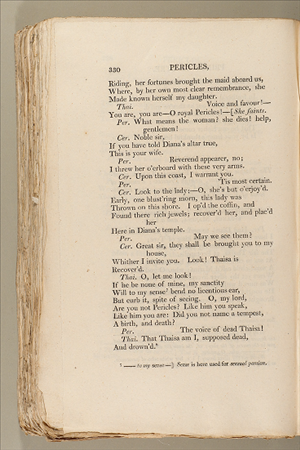 330 PERICLES,
Riding, her fortunes brought the maid aboard us,
Where, by her own most clear remembrance, she
Made known herself my daughter.
Thai. Voice and favour!—
You are, you are—O royal Pericles!—[She faints.
Per. What means the woman? she dies! help,
gentlemen!
Cer. Noble sir,
If you have told Diana's altar true,
This is your wife.
Per. Reverend appearer, no;
I threw her o'erboard with these very arms.
Cer. Upon this coast, I warrant you.
Per. 'Tis most certain.
Cer. Look to the lady;—O, she's but o'erjoy'd.
Early, one blust'ring morn, this lady was
Thrown on this shore. I op'd the coffin, and
Found there rich jewels; recover'd her, and plac'd
her
Here in Diana's temple.
Per. May we see them?
Cer. Great sir, they shall be brought you to my
house,
Whither I invite you. Look! Thaisa is
Recover'd.
Thai. O, let me look!
If he be none of mine, my sanctity
Will to my sense¹ bend no licentious ear,
But curb it, spite of seeing. O, my lord,
Are you not Pericles? Like him you speak,
Like him you are: Did you not name a tempest,
A birth, and death?
Per. The voice of dead Thaisa!
Thai. That Thaisa am I, supposed dead,
And drown'd.²
¹ —— to my sense—] Sense is here used for sensual passion.